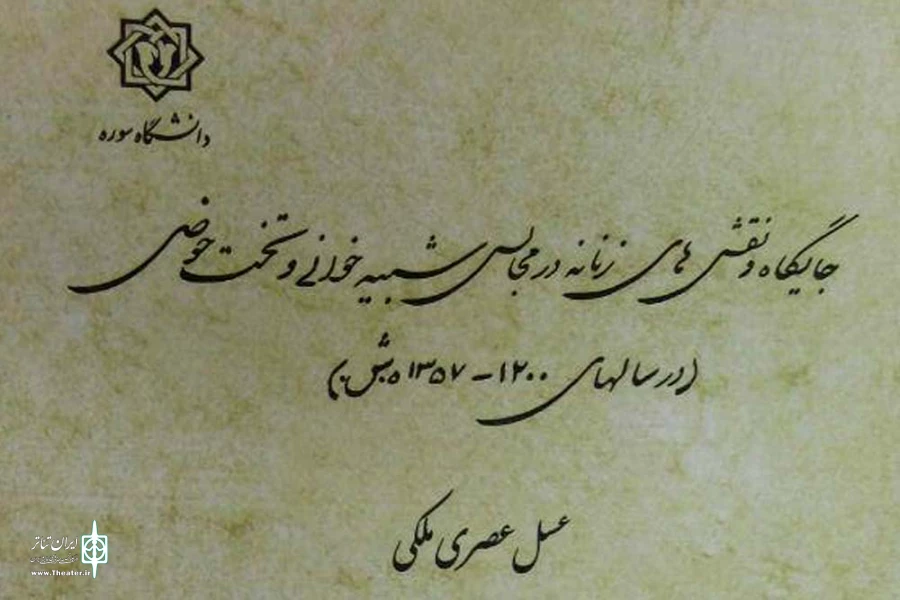 دانشگاه سوره
جایگاه و نقش های زنانه در مجالس شبیه خوانی و تخت حوضی
(در سالهای ۱۲۰۰ - ۱۳۵۷ ه.ش)
عسل عصری ملکی
ایران تئاتر
www.Theater.ir